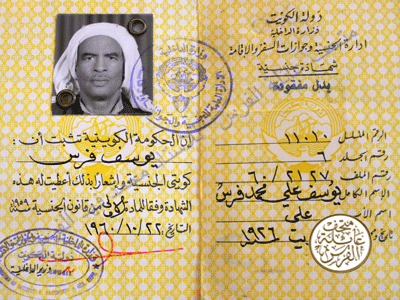 دولة الكويت
وزارة الداخلية
ادارة الجنسية وجوازات السفر والاقامة
شهادة جنسية
بدل مفقودة
الرقم المسلسل ١١٠١٠
رقم الجلد ٦
رقم الملف ٦٠/٢١٢٧
الاسم الكامل يوسف علي محمد فرس
علي
١٩٢٦
إن الحكومة الكويتية تثبت أن :
يوسف فرس
كويتي الجنسية وإشعارا بذلك أعطيت له هذه
الشهادة وفقا للمادة الاولى من قانون الجنسية ١٩٥٩
التاريخ ١٩٦٠/١٠/٢٢
دولة الكويت
وزير الداخلية